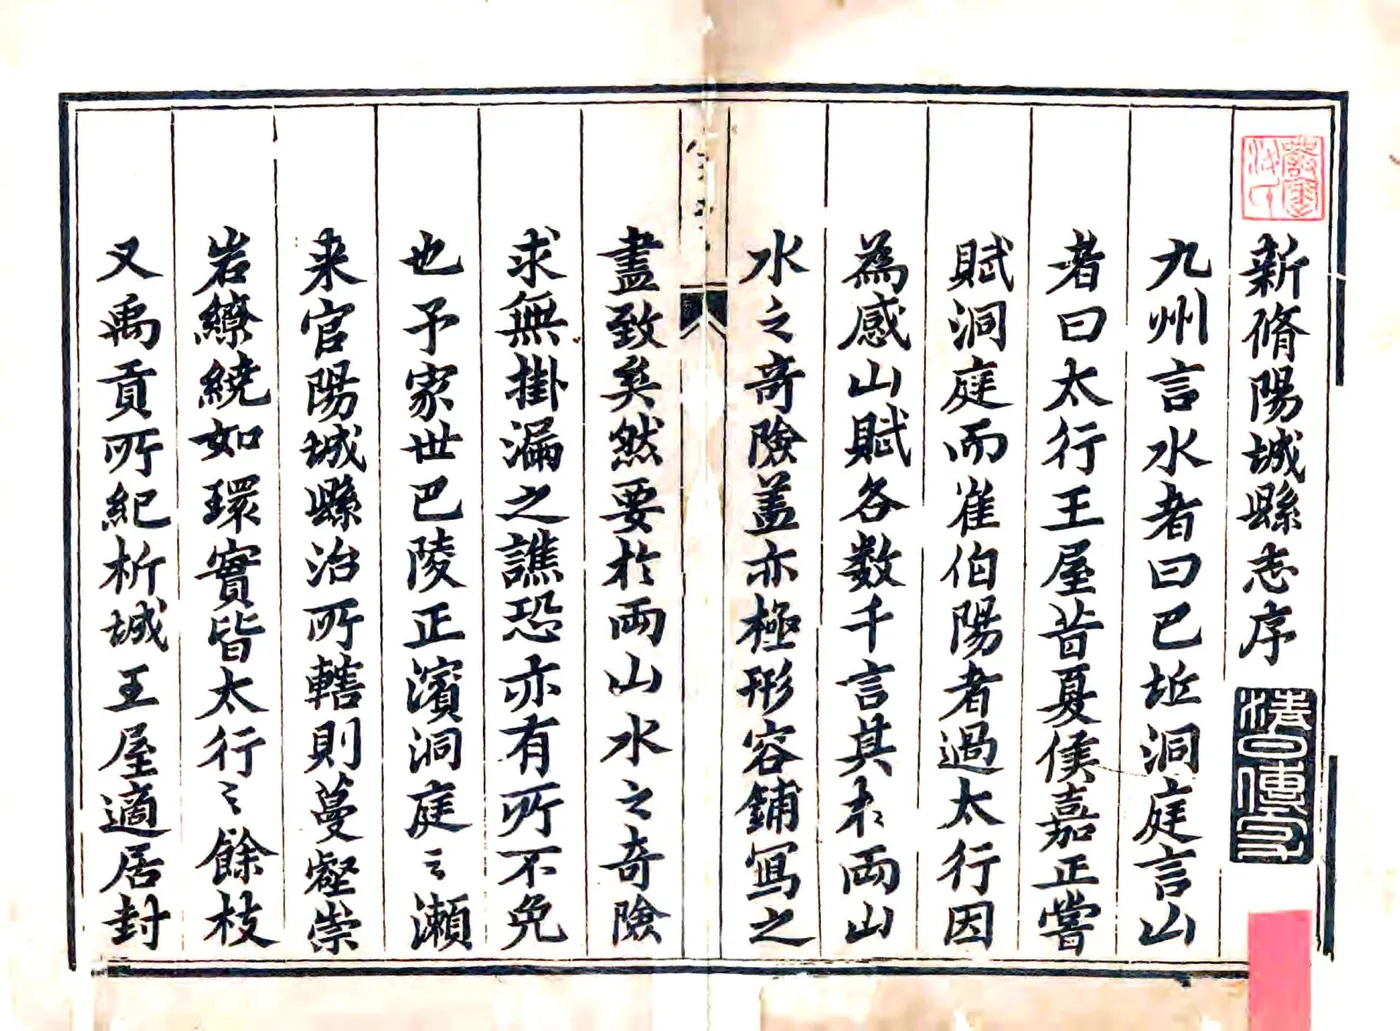 新脩陽城縣志序
九州言水者曰巴丘洞庭言山
者曰太行王屋昔夏侯嘉正嘗
賦洞庭而崔伯陽者過太行因
為感山賦各数千言其於兩山
水之奇險盖亦極形容鋪寫之
盡致矣然要於兩山水之奇險
求無掛漏之譙恐亦有所不免
也予家世巴陵正濱洞庭之瀬
来官陽城縣治所轄則蔓壑崇
岩繚繞如環實皆太行〻餘枝
又禹貢所紀析城王屋適居封